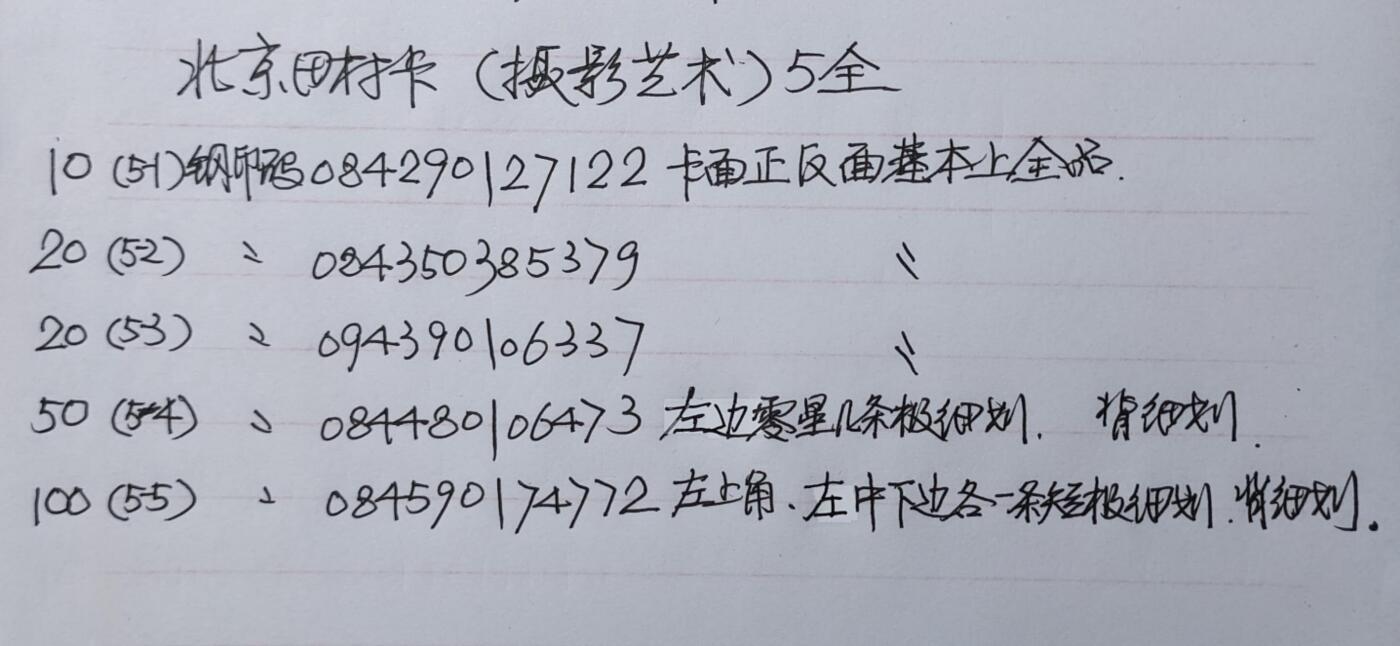 北京田村卡（摄影艺术）5全
10 (5-1) 钢印码084290127122 卡面正反面基本上全品.
20 (5-2) 〃 084350385379 〃
20 (5-3) 〃 094390106337 〃
50 (5-4) 〃 084480106473 左边零星几条极细划. 背细划.
100 (5-5) 〃 084590174772 左上角、左中下边各一条短极细划.背细划.